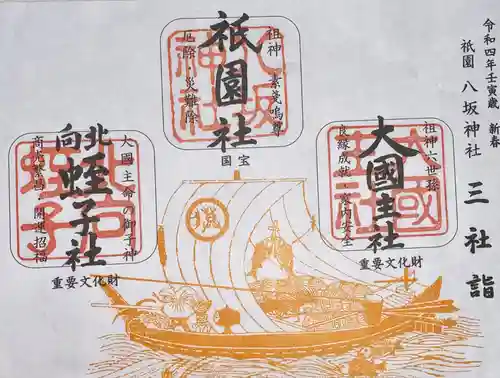 令和四年壬寅歳 新春
祇園 八坂神社 三社詣
祖神 素戔嗚尊
祇園社
厄除・災難除
八坂神社
国宝
祖神六世孫
大國主社
良縁成就・家内安全
大國主社
重要文化財
大國主命の御子神
北向
蛭子社
商売繁昌・開運招福
北向蛭子
重要文化財